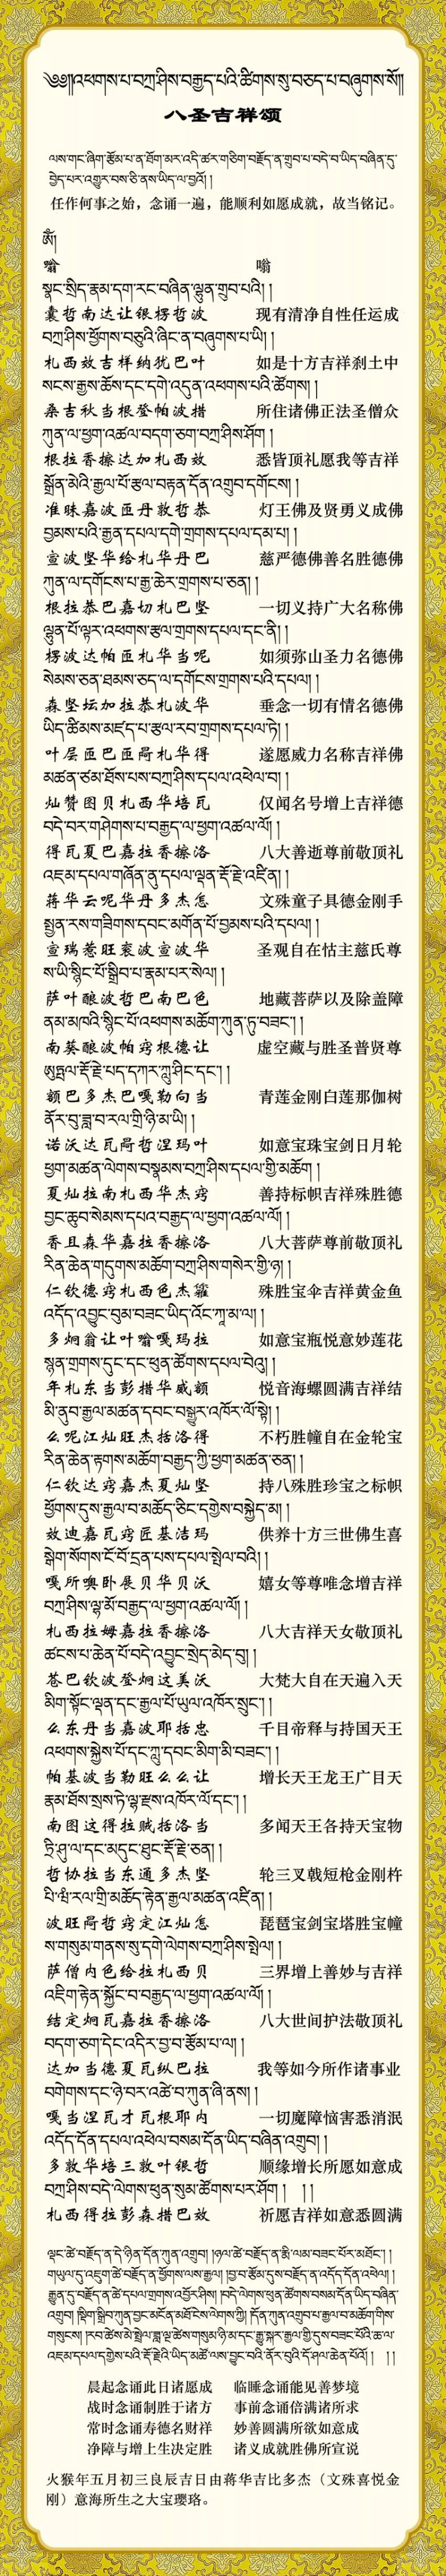 ༄༅།།འཕགས་པ་བཀྲ་ཤིས་བརྒྱད་པའི་ཚིགས་སུ་བཅད་པ་བཞུགས་སོ།།
八圣吉祥颂
ལས་གང་ཞིག་རྩོམ་པ་ན་ཐོག་མར་འདི་ཚར་གཅིག་བརྗོད་ན་གྲུབ་པ་བདེ་བ་ཡིད་བཞིན་དུ་
བྱེད་པར་འགྱུར་བས་ཅི་ནས་ཡིད་ལ་བྱའོ། །
任作何事之始，念诵一遍，能顺利如愿成就，故当铭记。
ཨོཾ།
嗡 嗡
སྣང་སྲིད་རྣམ་དག་རང་བཞིན་ལྷུན་གྲུབ་པའི། །
囊哲南达让银楞哲波 现有清净自性任运成
བཀྲ་ཤིས་ཕྱོགས་བཅུའི་ཞིང་ན་བཞུགས་པ་ཡི། །
札西效吉祥纳犹巴叶 如是十方吉祥刹土中
སངས་རྒྱས་ཆོས་དང་དགེ་འདུན་འཕགས་པའི་ཚོགས། །
桑吉秋当根登帕波措 所住诸佛正法圣僧众
ཀུན་ལ་ཕྱག་འཚལ་བདག་ཅག་བཀྲ་ཤིས་ཤོག །
根拉香擦达加札西效 悉皆顶礼愿我等吉祥
སྒྲོན་མེའི་རྒྱལ་པོ་རྩལ་བརྟན་དོན་འགྲུབ་དགོངས། །
准昧嘉波匝丹敦哲恭 灯王佛及贤勇义成佛
བྱམས་པའི་རྒྱན་དཔལ་དགེ་གྲགས་དཔལ་དམ་པ། །
宣波坚华给札华丹巴 慈严德佛善名胜德佛
ཀུན་ལ་དགོངས་པ་རྒྱ་ཆེར་གྲགས་པ་ཅན། །
根拉恭巴嘉切札巴坚 一切义持广大名称佛
ལྷུན་པོ་ལྟར་འཕགས་རྩལ་གྲགས་དཔལ་དང་ནི། །
楞波达帕匝札华当呢 如须弥山圣力名德佛
སེམས་ཅན་ཐམས་ཅད་ལ་དགོངས་གྲགས་པའི་དཔལ། །
森坚坛加拉恭札波华 垂念一切有情名德佛
ཡིད་ཚིམས་མཛད་པ་རྩལ་རབ་གྲགས་དཔལ་ཏེ། །
叶层匝巴匝冏札华得 遂愿威力名称吉祥佛
མཚན་ཙམ་ཐོས་པས་བཀྲ་ཤིས་དཔལ་འཕེལ་བ། །
灿赞图贝札西华培瓦 仅闻名号增上吉祥德
བདེ་བར་གཤེགས་པ་བརྒྱད་ལ་ཕྱག་འཚལ་ལོ། །
得瓦夏巴嘉拉香擦洛 八大善逝尊前敬顶礼
འཇམ་དཔལ་གཞོན་ནུ་དཔལ་ལྡན་རྡོ་རྗེ་འཛིན། །
蒋华云呢华丹多杰怎 文殊童子具德金刚手
སྤྱན་རས་གཟིགས་དབང་མགོན་པོ་བྱམས་པའི་དཔལ། །
宣瑞惹旺衮波宣波华 圣观自在怙主慈氏尊
ས་ཡི་སྙིང་པོ་སྒྲིབ་པ་རྣམ་པར་སེལ། །
萨叶酿波哲巴南巴色 地藏菩萨以及除盖障
ནམ་མཁའི་སྙིང་པོ་འཕགས་མཆོག་ཀུན་ཏུ་བཟང་། །
南葵酿波帕窍根德让 虚空藏与胜圣普贤尊
ཨུཏྤལ་རྡོ་རྗེ་པད་དཀར་ཀླུ་ཤིང་དང་། །
额巴多杰巴嘎勒向当 青莲金刚白莲那伽树
ནོར་བུ་ཟླ་བ་རལ་གྲི་ཉི་མ་ཡི། །
诺沃达瓦冏哲涅玛叶 如意宝珠宝剑日月轮
ཕྱག་མཚན་ལེགས་བསྣམས་བཀྲ་ཤིས་དཔལ་གྱི་མཆོག །
夏灿拉南札西华杰窍 善持标帜吉祥殊胜德
བྱང་ཆུབ་སེམས་དཔའ་བརྒྱད་ལ་ཕྱག་འཚལ་ལོ། །
香且森华嘉拉香擦洛 八大菩萨尊前敬顶礼
རིན་ཆེན་གདུགས་མཆོག་བཀྲ་ཤིས་གསེར་གྱི་ཉ། །
仁钦德窍札西色杰 殊胜宝伞吉祥黄金鱼
འདོད་འབྱུང་བུམ་བཟང་ཡིད་འོང་ཀཱ་མ་ལ། །
多炯翁让叶嗡嘎玛拉 如意宝瓶悦意妙莲花
སྙན་གྲགས་དུང་དང་ཕུན་ཚོགས་དཔལ་བེའུ། །
年札东当彭措华威额 悦音海螺圆满吉祥结
མི་ནུབ་རྒྱལ་མཚན་དབང་བསྒྱུར་འཁོར་ལོ་སྟེ། །
么呢江灿旺杰括洛得 不朽胜幢自在金轮宝
རིན་ཆེན་རྟགས་མཆོག་བརྒྱད་ཀྱི་ཕྱག་མཚན་ཅན། །
仁钦达窍嘉杰夏灿坚 持八殊胜珍宝之标帜
ཕྱོགས་དུས་རྒྱལ་བ་མཆོད་ཅིང་དགྱེས་བསྐྱེད་མ། །
效迪嘉瓦窍匠基洁玛 供养十方三世佛生喜
སྒེག་སོགས་ངོ་བོ་དྲན་པས་དཔལ་སྤེལ་བའི། །
嘎所噢卧展贝华贝沃 嬉女等尊唯念增吉祥
བཀྲ་ཤིས་ལྷ་མོ་བརྒྱད་ལ་ཕྱག་འཚལ་ལོ། །
札西拉姆嘉拉香擦洛 八大吉祥天女敬顶礼
ཚངས་པ་ཆེན་པོ་བདེ་འབྱུང་སྲེད་མེད་བུ། །
苍巴钦波登炯这美沃 大梵大自在天遍入天
མིག་སྟོང་ལྡན་དང་རྒྱལ་པོ་ཡུལ་འཁོར་སྲུང་། །
么东丹当嘉波耶括忠 千目帝释与持国天王
འཕགས་སྐྱེས་པོ་དང་ཀླུ་དབང་མིག་མི་བཟང་། །
帕基波当勒旺么么让 增长天王龙王广目天
རྣམ་ཐོས་སྲས་ཏེ་ལྷ་རྫས་འཁོར་ལོ་དང་། །
南图这得拉贼括洛当 多闻天王各持天宝物
ཏྲི་ཤཱུ་ལ་དང་མདུང་ཐུང་རྡོ་རྗེ་ཅན། །
哲协拉当东通多杰坚 轮三叉戟短枪金刚杵
པི་ཝཾ་རལ་གྲི་མཆོད་རྟེན་རྒྱལ་མཚན་འཛིན། །
波旺冏哲窍定江灿怎 琵琶宝剑宝塔胜宝幢
ས་གསུམ་གནས་སུ་དགེ་ལེགས་བཀྲ་ཤིས་སྤེལ། །
萨僧内色给拉札西贝 三界增上善妙与吉祥
འཇིག་རྟེན་སྐྱོང་བ་བརྒྱད་ལ་ཕྱག་འཚལ་ལོ། །
结定炯瓦嘉拉香擦洛 八大世间护法敬顶礼
བདག་ཅག་དེང་འདིར་བྱ་བ་རྩོམ་པ་ལ། །
达加当德夏瓦纵巴拉 我等如今所作诸事业
བགེགས་དང་ཉེ་བར་འཚེ་བ་ཀུན་ཞི་ནས། །
嘎当涅瓦才瓦根耶内 一切魔障恼害悉消泯
འདོད་དོན་དཔལ་འཕེལ་བསམ་དོན་ཡིད་བཞིན་འགྲུབ། །
多敦华培三敦叶银哲 顺缘增长所愿如意成
བཀྲ་ཤིས་བདེ་ལེགས་ཕུན་སུམ་ཚོགས་པར་ཤོག །
札西得拉彭森措巴效 祈愿吉祥如意悉圆满
ལྡང་ཚེ་བརྗོད་ན་དེ་ཉིན་དོན་ཀུན་འགྲུབ། །ཉལ་ཚེ་བརྗོད་ན་རྨི་ལམ་བཟང་པོར་མཐོང་། །
གཡུལ་དུ་འཇུག་ཚེ་བརྗོད་ན་ཕྱོགས་ལས་རྒྱལ། །བྱ་བ་རྩོམ་དུས་བརྗོད་ན་འདོད་དོན་འཕེལ། །
རྒྱུན་དུ་བརྗོད་ན་ཚེ་དཔལ་གྲགས་འབྱོར་ཤིས། །བདེ་ལེགས་ཕུན་ཚོགས་བསམ་དོན་ཡིད་བཞིན་
འགྲུབ། །སྡིག་སྒྲིབ་ཀུན་བྱང་མངོན་མཐོ་ངེས་ལེགས་ཀྱི། །དོན་ཀུན་འགྲུབ་པ་རྒྱལ་བ་མཆོག་གིས་
晨起念诵此日诸愿成 临睡念诵能见善梦境
战时念诵制胜于诸方 事前念诵倍满诸所求
常时念诵寿德名财祥 妙善圆满所欲如意成
净障与增上生决定胜 诸义成就胜佛所宣说
火猴年五月初三良辰吉日由蒋华吉比多杰（文殊喜悦金
刚）意海所生之大宝璎珞。